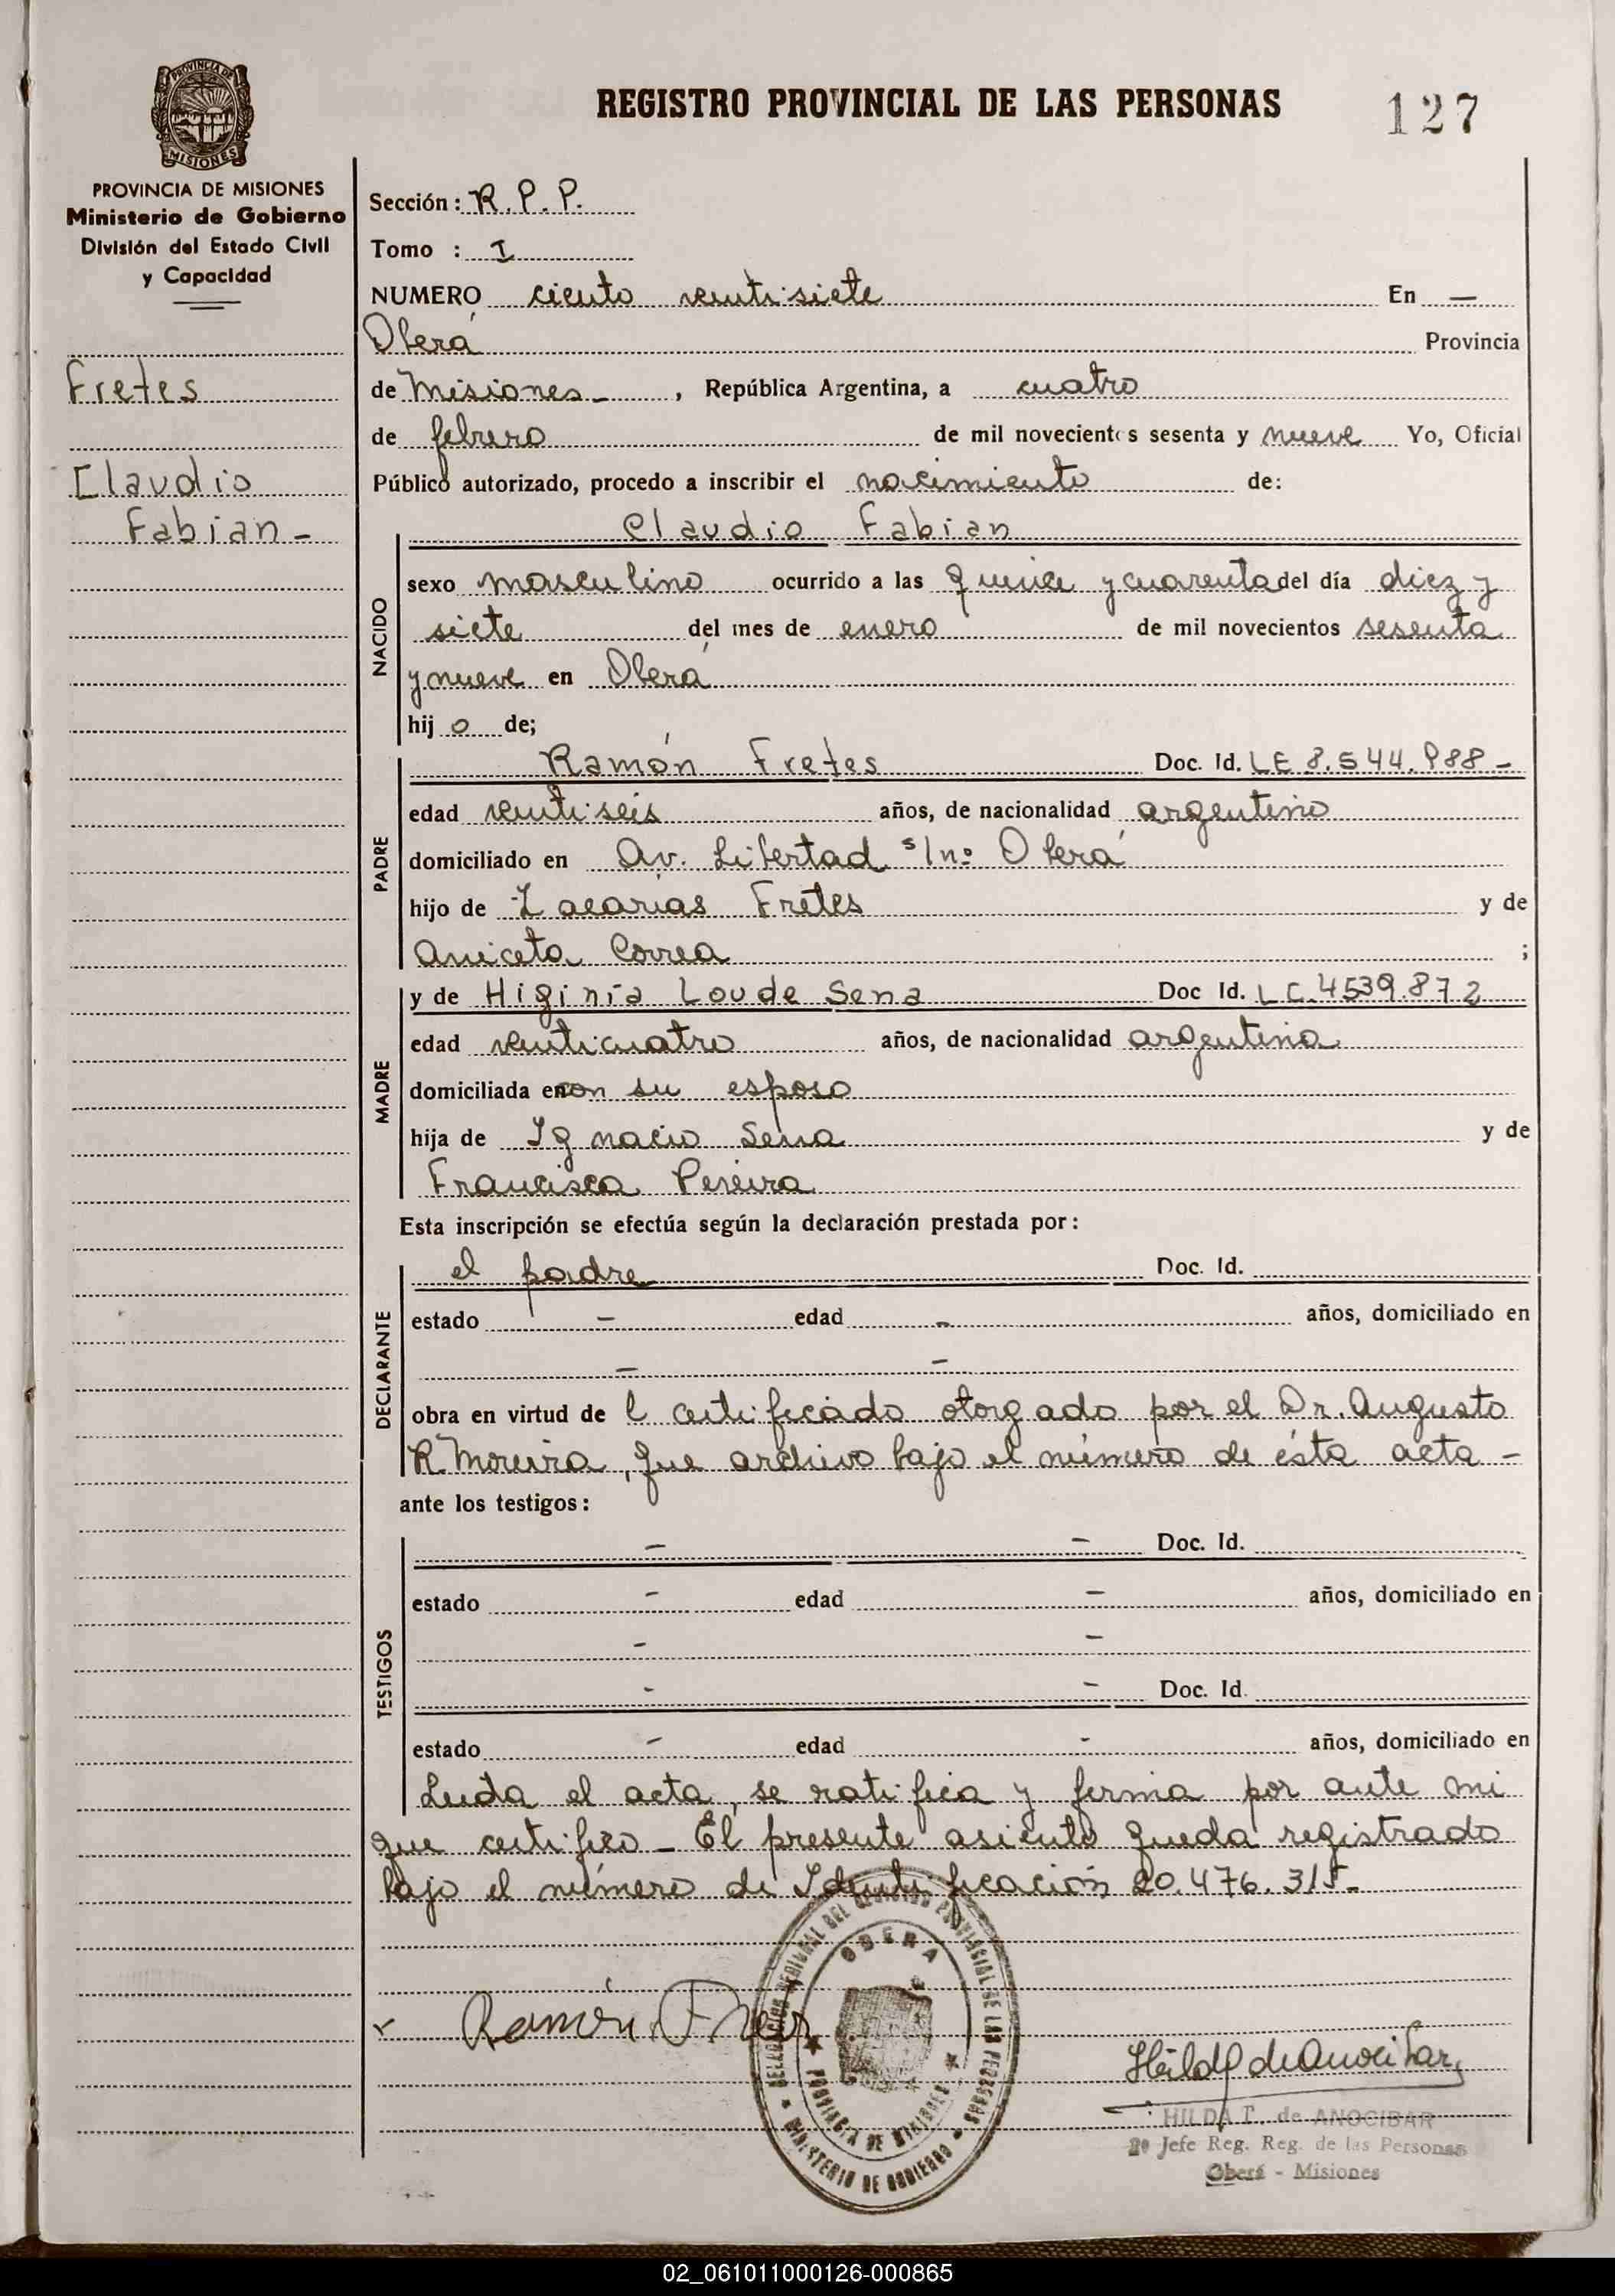 PROVINCIA DE
MISIONES
REGISTRO PROVINCIAL DE LAS PERSONAS 127
PROVINCIA DE MISIONES
Ministerio de Gobierno
División del Estado Civil
y Capacidad
Fretes
Claudio
Fabian -
Sección: R.P.P.
Tomo : I
NUMERO ciento veintisiete En —
Oberá Provincia
de Misiones - , República Argentina, a cuatro
de febrero de mil novecientos sesenta y nueve Yo, Oficial
Público autorizado, procedo a inscribir el nacimiento de:
Claudio Fabian
NACIDO
sexo masculino ocurrido a las quince y cuarenta del día diez y
siete del mes de enero de mil novecientos sesenta
y nueve en Oberá
hijo de;
PADRE
Ramón Fretes Doc. Id. LE 8.544.988 -
edad veintiseis años, de nacionalidad argentino
domiciliado en Av. Libertad s/nº Oberá
hijo de Zacarias Fretes y de
Aniceta Correa ;
MADRE
y de Higinia Loude Sena Doc Id. LC.4539.872
edad venticuatro años, de nacionalidad argentina
domiciliada en con su esposo
hija de Ignacio Sena y de
Francisca Pereira
Esta inscripción se efectúa según la declaración prestada por:
DECLARANTE
el padre Doc. Id.
estado - edad - años, domiciliado en
- -
obra en virtud del certificado otorgado por el Dr. Augusto
R. Moreira, que archivo bajo el número de ésta acta -
ante los testigos:
TESTIGOS
- - Doc. Id.
estado - edad - años, domiciliado en
- -
- - Doc. Id.
estado - edad - años, domiciliado en
Leida el acta, se ratifica y firma por ante mi
que certifico - El presente asiento queda registrado
bajo el número de Identificación 20.476.315-
Ramón Fretes
DELEGACION REGIONAL DEL REGISTRO PROVINCIAL DE LAS PERSONAS
MINISTERIO DE GOBIERNO
OBERA
PROVINCIA DE MISIONES
Hilda de Anocibar
HILDA T. de ANOCIBAR
2º Jefe Reg. Reg. de las Personas
Oberá - Misiones
02_061011000126-000865